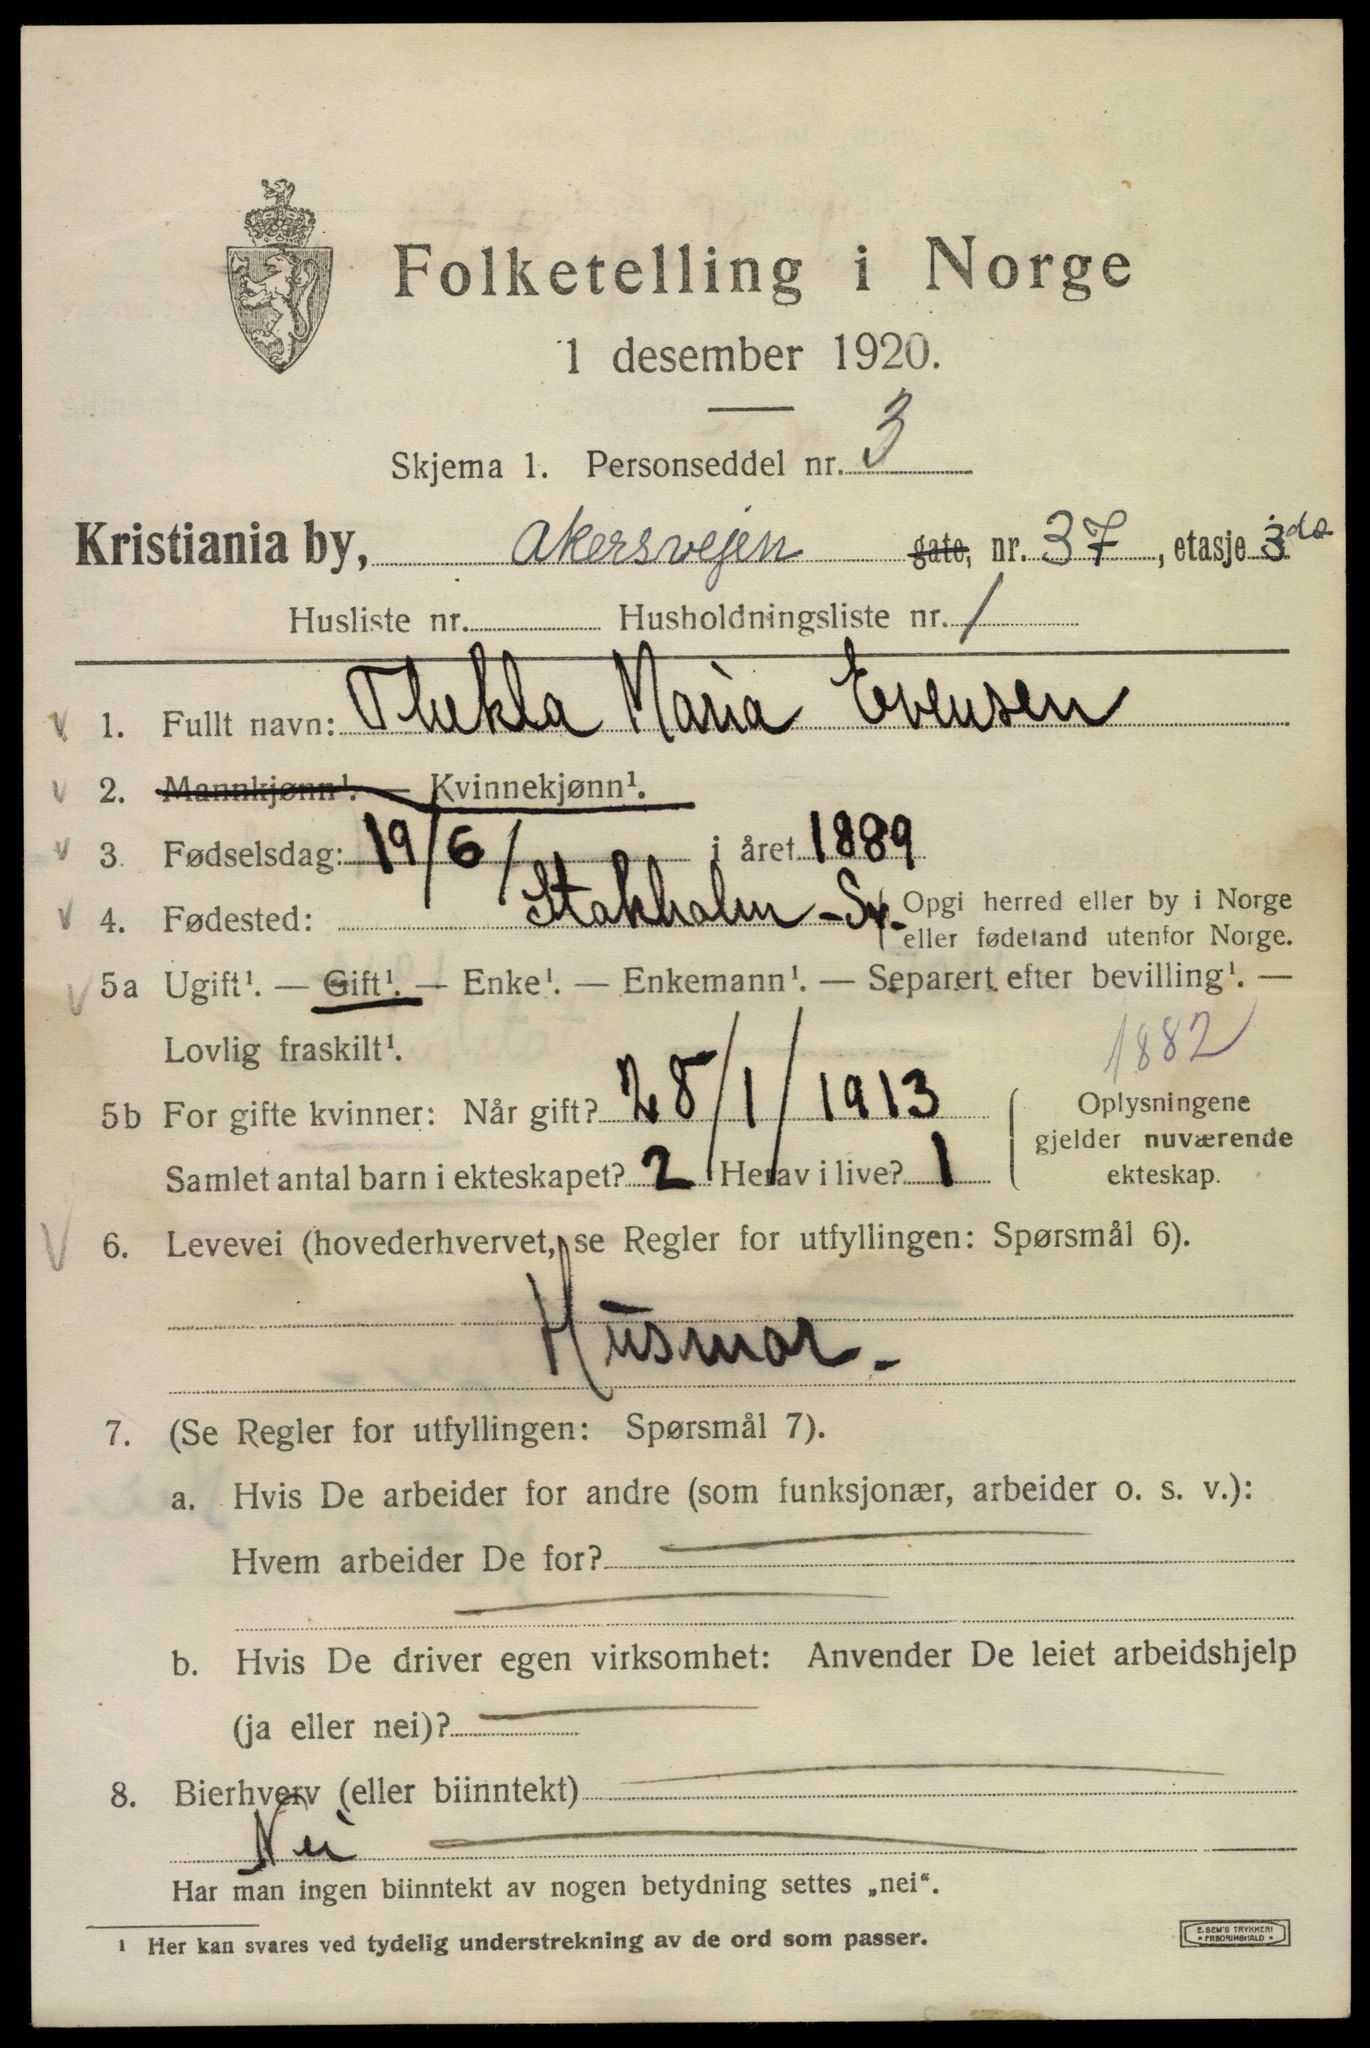 Folketelling i Norge
1 desember 1920.
Skjema 1. Personseddel nr. 3
Kristiania by, Akersvejen gate, nr. 37, etasje 3de
Husliste nr. Husholdningsliste nr. 1
1. Fullt navn: Thekla Maria Evensen
2. Mannkjønn¹. — Kvinnekjønn¹.
3. Fødselsdag: 19/6/ i året 1889
4. Fødested: Stokholm - Sv. Opgi herred eller by i Norge
eller fødeland utenfor Norge.
5a Ugift¹. — Gift¹. — Enke¹. — Enkemann¹. — Separert efter bevilling¹. —
Lovlig fraskilt¹.
1882
5b For gifte kvinner: Når gift? 28/1/1913
Samlet antal barn i ekteskapet? 2 Herav i live? 1
Oplysningene
gjelder nuværende
ekteskap.
6. Levevei (hovederhvervet, se Regler for utfyllingen: Spørsmål 6).
Husmor.-
7. (Se Regler for utfyllingen: Spørsmål 7).
a. Hvis De arbeider for andre (som funksjonær, arbeider o. s. v.):
Hvem arbeider De for?
b. Hvis De driver egen virksomhet: Anvender De leiet arbeidshjelp
(ja eller nei)?
8. Bierhverv (eller biinntekt)
Nei
Har man ingen biinntekt av nogen betydning settes „nei“.
¹ Her kan svares ved tydelig understrekning av de ord som passer.
E. SEM'S TRYKKERI
FREDRIKSHALD